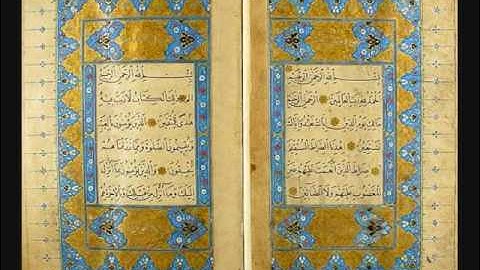 بسم الله الرحمن الرحيم
الحمد لله رب العالمين الرحمن الرحيم
ملك يوم الدين اياك نعبد واياك
نستعين اهدنا الصراط المستقيم
صراط الذين انعمت عليهم غير
المغضوب عليهم ولا الضالين
بسم الله الرحمن الرحيم
الم ذلك الكتاب لا ريب فيه
هدى للمتقين الذين يؤمنون بالغيب
ويقيمون الصلوة ومما رزقناهم
ينفقون والذين يؤمنون بما انزل
اليك وما انزل من قبلك وبالاخرة